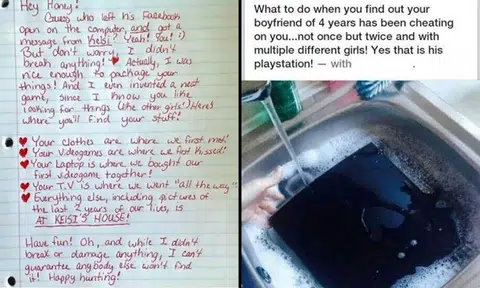 Hey Honey!
Guess who left his Facebook
open on the computer, and got a
message from Keisi? Yeah! You! :)
But don't worry, I didn't
break anything! ♥ Actually, I was
nice enough to package your
things! And I even invented a neat
game, since I know you like
looking for things (like other girls). Here's
where you'll find your stuff!
♥ Your clothes are where we first met!
♥ Your Videogames are where we first kissed!
♥ Your Laptop is where we bought our
first videogame together!
♥ Your T.V is where we went "all the way"
♥ Everything else, including pictures of
the last 2 years of our lives, is
AT KEISI'S HOUSE!
Have fun! Oh, and while I didn't
break or damage anything, I can't
guarantee anybody else won't find
it! Happy hunting!
What to do when you find out your
boyfriend of 4 years has been cheating
on you...not once but twice and with
multiple different girls! Yes that is his
playstation! — with